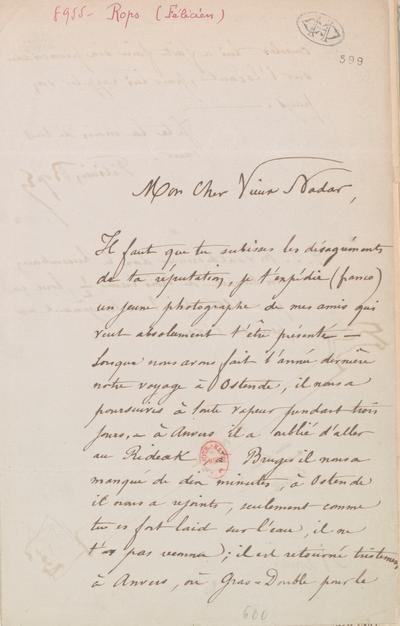 8955 - Rops (Félicien)
599
Mon Cher Vieux Nadar,
Il faut que tu subisses les désagréments
de ta réputation, je t'expédie (franco)
un jeune photographe de mes amis qui
veut absolument t'être présenté —
Lorsque nous avons fait l'année dernière
notre voyage à Ostende, il nous a
poursuivis à toute vapeur pendant trois
jours, à Anvers il a oublié d'aller
au Rideak Bruges il nous a
manqué de dix minutes, à Ostende
il nous a rejoints, seulement comme
tu es fort laid sur l'eau, il ne
t'a pas reconnu; il est retourné tristement
à Anvers, où Gras-Double pour le
600